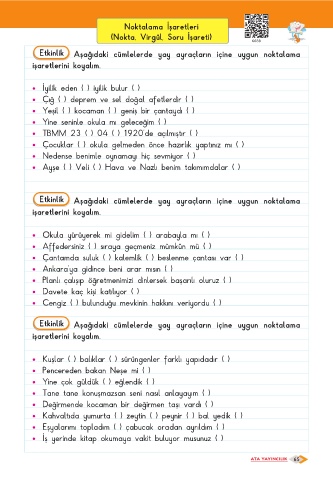 Noktalama İşaretleri
(Nokta, Virgül, Soru İşareti)
Etkinlik Aşağıdaki cümlelerde yay ayraçların içine uygun noktalama
işaretlerini koyalım.
• İyilik eden ( ) iyilik bulur ( )
• Çığ ( ) deprem ve sel doğal afetlerdir ( )
• Yeşil ( ) kocaman ( ) geniş bir çantaydı ( )
• Yine seninle okula mı geleceğim ( )
• TBMM 23 ( ) 04 ( ) 1920'de açılmıştır ( )
• Çocuklar ( ) okula gelmeden önce hazırlık yaptınız mı ( )
• Nedense benimle oynamayı hiç sevmiyor ( )
• Ayşe ( ) Veli ( ) Hava ve Nazlı benim takımımdalar ( )
Etkinlik Aşağıdaki cümlelerde yay ayraçların içine uygun noktalama
işaretlerini koyalım.
• Okula yürüyerek mi gidelim ( ) arabayla mı ( )
• Affedersiniz ( ) sıraya geçmeniz mümkün mü ( )
• Çantamda suluk ( ) kalemlik ( ) beslenme çantası var ( )
• Ankara'ya gidince beni arar mısın ( )
• Planlı çalışıp öğretmenimizi dinlersek başarılı oluruz ( )
• Davete kaç kişi katılıyor ( )
• Cengiz ( ) bulunduğu mevkinin hakkını veriyordu ( )
Etkinlik Aşağıdaki cümlelerde yay ayraçların içine uygun noktalama
işaretlerini koyalım.
• Kuşlar ( ) balıklar ( ) sürüngenler farklı yapıdadır ( )
• Pencereden bakan Neşe mi ( )
• Yine çok güldük ( ) eğlendik ( )
• Tane tane konuşmazsan seni nasıl anlayayım ( )
• Değirmende kocaman bir değirmen taşı vardı ( )
• Kahvaltıda yumurta ( ) zeytin ( ) peynir ( ) bal yedik ( )
• Eşyalarımı topladım ( ) çabucak oradan ayrıldım ( )
• İş yerinde kitap okumaya vakit buluyor musunuz ( )
ATA YAYINCILIK 65